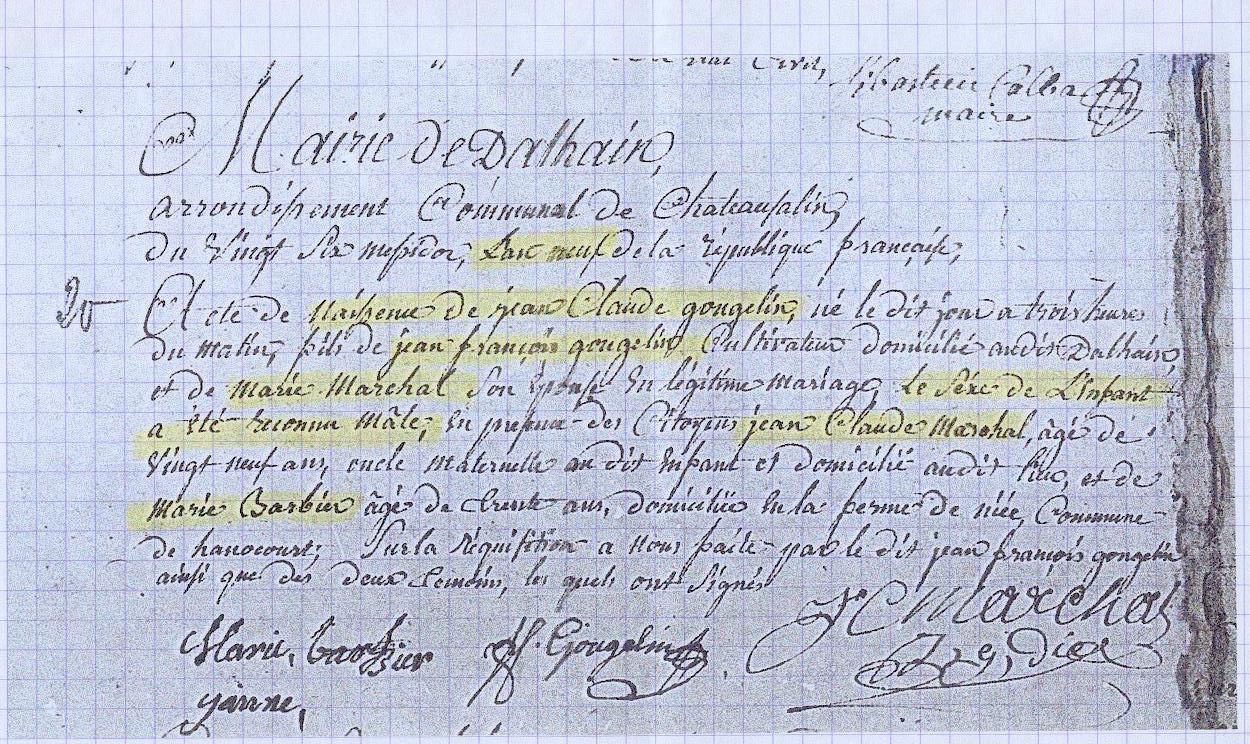 Civil,
Sébastien Calba
maire
Mairie de Dalhain,
arrondissement Communal de Chateausalin,
du vingt six messidor, L'an neuf de la république française,
20
Acte de Naissence de jean Claude gougelin, né le dit jour a trois heures
du matin, fils de jean françois gougelin Cultivateur domicilié audit Dalhain,
et de marie Marchal Son épouse En légitime mariage, Le Séxe de L'Enfant
a été reconnu Mâle, En presence des Citoyens jean Claude Marchal, âgé de
vingt neuf ans, oncle maternelle au dit Enfant et domicilié audit lieu, et de
Marie Barbier âgé de trente ans, domiciliée En la ferme de niée, Commune
de hanocourt; Sur la réquisition a Nous faite par le dit jean françois gougelin
ainsi que des deux temoins, les quels ont Signés
JC Marchal
Marie, barbier
Jf. Gougelin